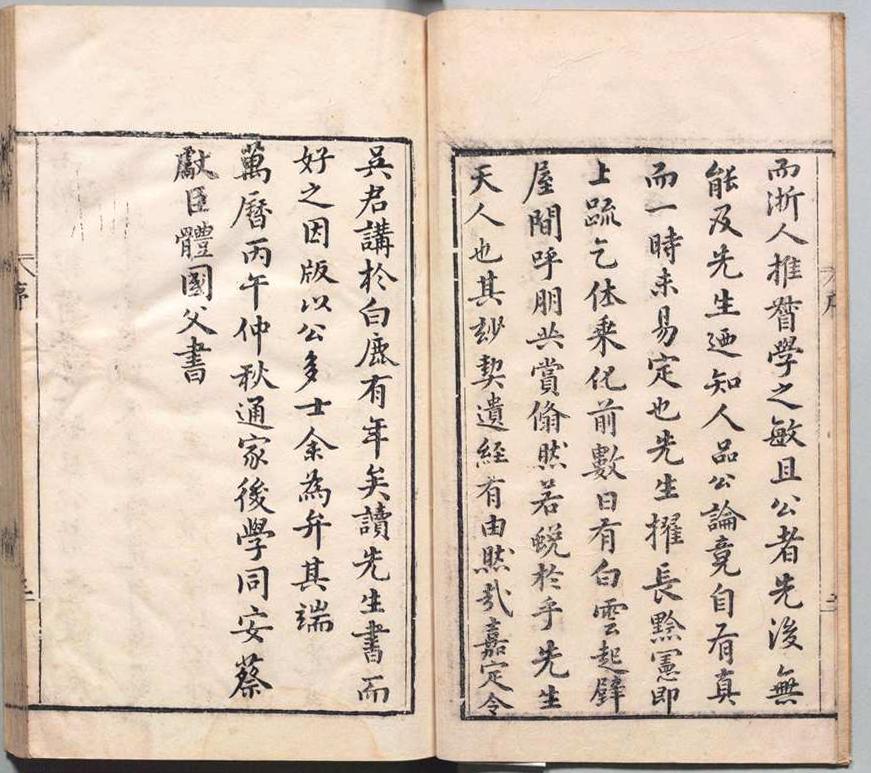 而浙人推督學之敏且公者先後無
能及先生迺知人品公論竟自有真
而一時未易定也先生擢長黔憲即
上疏乞休乘化前數日有白雲起辟
屋間呼朋共賞翛然若蛻於乎先生
天人也其玅契遺經有由然哉嘉定令
吳君講於白鹿有年矣讀先生書而
好之因版以公多士余為弁其端
萬曆丙午仲秋通家後學同安蔡
獻臣體國父書
序